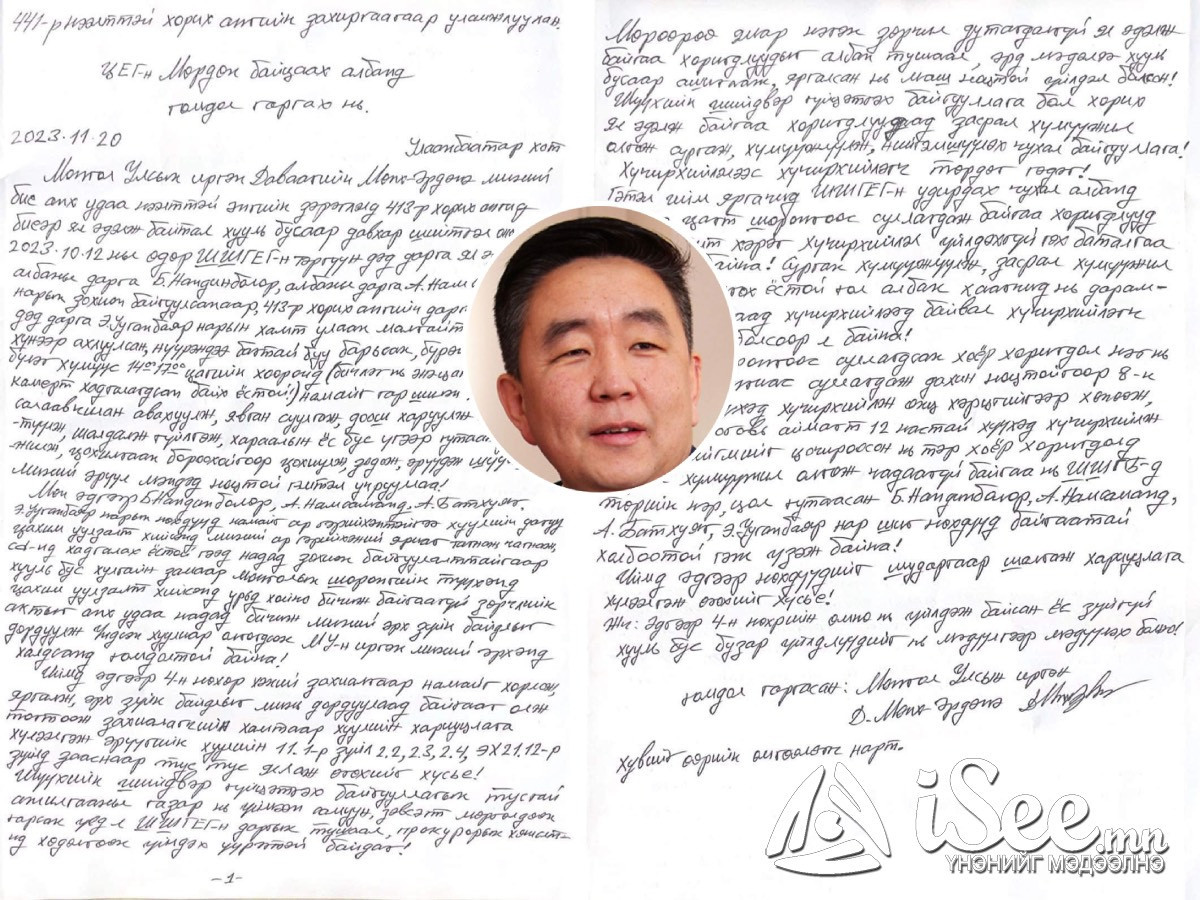 441-р нээлттэй хорих ангийн захиргаагаар уламжлуулан.
ЦЕГ-н Мөрдөн байцаах албанд
гомдол гаргах нь.
2023.11.20 Улаанбаатар хот
Монгол Улсын иргэн Даваагийн Мөнх-Эрдэнэ миний
бие анх удаа нээлттэй ангийн дэглэмд 413-р хорих ангид
биеэр ял эдэлж байтал хууль бусаар давхар шийтгэл
2023.10.12-ны өдөр ШШГЕГ-н тэргүүн дэд дарга
албаны дарга Б.Нандинболор, албаны дарга А.Намс
нарын зохион байгуулалтаар, 413-р хорих ангийн дарг
дэд дарга Э.Ууганбаяр нарын хамт улаан малгайт
хүнээр ахлуулсан, нүүрэндээ багтай буу барьсан, бүрэн
бүлэг хүмүүс 14⁰⁰-17⁰⁰ цагийн хооронд (бичлэг нь
камерт хадгалагдсан байх ёстой!) намайг гар
салаавчлан авахуулж, явган суулгаж, доош харуулж
-түүлж, шалдалж гүйлгэж, хараалын ёс бус үгээр гутаа
-жилж, цохилтоор бороохойгоор цохиулж, зодож, эрүүдэн шүү-
миний эрүүл мэндэд ноцтой гэмтэл учрууллаа!
Мөн эдгээр Б.Нандинболор, А.Намсаманд, А.Батхуяг,
Э.Ууганбаяр нарын нөхдүүд намайг ар гэрийнхэнтэйгээ хуулийн дагуу
цахим уулзалт хийхэд миний ар гэрийнхний яриаг тагнаж чагнаж,
CD-нд хадгалах ёстой гээд надад зохион байгуулалттайгаар
хууль бус хулгайн замаар Монголын шоронгийн түүхэнд
цахим уулзалт хийхэд урьд хожно бичиж байгаагүй зөрчлийн
актыг анх удаа надад бичиж миний эрх зүйн байдлыг
дордуулж Үндсэн хуулиар олгогдсон МУ-н иргэн миний эрхэнд
халдсанд гомдолтой байна!
Иймд эдгээр 4-н нөхөр хэний захиалгаар намайг хорлон,
яргалж, эрх зүйн байдлыг минь дордуулаад байгааг олж
тогтоож захиалагчийн хамтаар хуулийн хариуцлага
хүлээлгэж эрүүгийн хуулийн 11.1-р зүйл 2.2, 2.3, 2.4, ЭХ 21.12-р
зүйлд зааснаар тус тус яллаж өгөхийг хүсье!
Шүүхийн шийдвэр гүйцэтгэх байгууллагын тусгай
ажиллагааны газар нь үймээн самуун, зэвсэгт мөргөлдөөн
гарсан үед л ШШГЕГ-н даргын тушаал, прокурорын хяналт-
нд хөдөлгөөн үйлдэх үүрэгтэй байдаг!
-1-
Мөрөөрөө ямар нэгэн зөрчил дутагдалгүй ял эдэлж
байгаа хоригдлуудыг албан тушаал, эрх мэдэлээ хууль
бусаар ашиглаж, яргалсан нь маш ноцтой үйлдэл болсон!
Шүүхийн шийдвэр гүйцэтгэх байгууллага бол хорих
ял эдэлж байгаа хоригдлуудад засрал хүмүүжил
олгож сургаж, хүмүүжүүлж, нийгэмшүүлэх чухал байгууллага!
Хүчирхийлэлээс хүчирхийлэгч төрдөг гэдэг!
Гэтэл ийм яргачид ШШГЕГ-н удирдах чухал албанд
цагт шоронгоос суллагдаж байгаа хоригдлууд
хэрэг хүчирхийлэл үйлдэхгүй гэх баталгаа
байна! Сурган хүмүүжүүлж, засрал хүмүүжил
ёстой гол албан хаагчид нь дарам-
хүчирхийлээд байвал хүчирхийлэгч
болсоор л байна!
суллагдсан хоёр хоригдол нэг нь
суллагдаж дахин ноцтойгоор 8-н
хүүхэд хүчирхийлэн онц хэрцгийгээр хөнөөж,
говь аймагт 12 настай хүүхэд хүчирхийлж
нийгмийг цочроосон нь тэр хоёр хоригдолд
хүмүүжил олгож чадаагүй байгаа нь ШШГБ-д
төрийн нэр, цол гутаасан Б.Нандинболор, А.Намсаманд,
А.Батхуяг, Э.Ууганбаяр нар шиг нөхдүүд байгаатай
холбоотой гэж үзэж байна!
Иймд эдгээр нөхдүүдийг шударгаар шалгаж хариуцлага
хүлээлгэж өгөхийг хүсье!
Жич: Эдгээр 4-н нөхрийн өмнө нь үйлдэж байсан ёс зүйгүй
хууль бус бузар үйлдлүүдийг нь мэдүүлгээр мэдүүлэх болно!
гомдол гаргасан: Монгол Улсын иргэн
Д. Мөнх-Эрдэнэ
хувийг өөрийн өмгөөлөгч нарт.
iSee.mn
ҮНЭНИЙГ МЭДЭЭЛНЭ